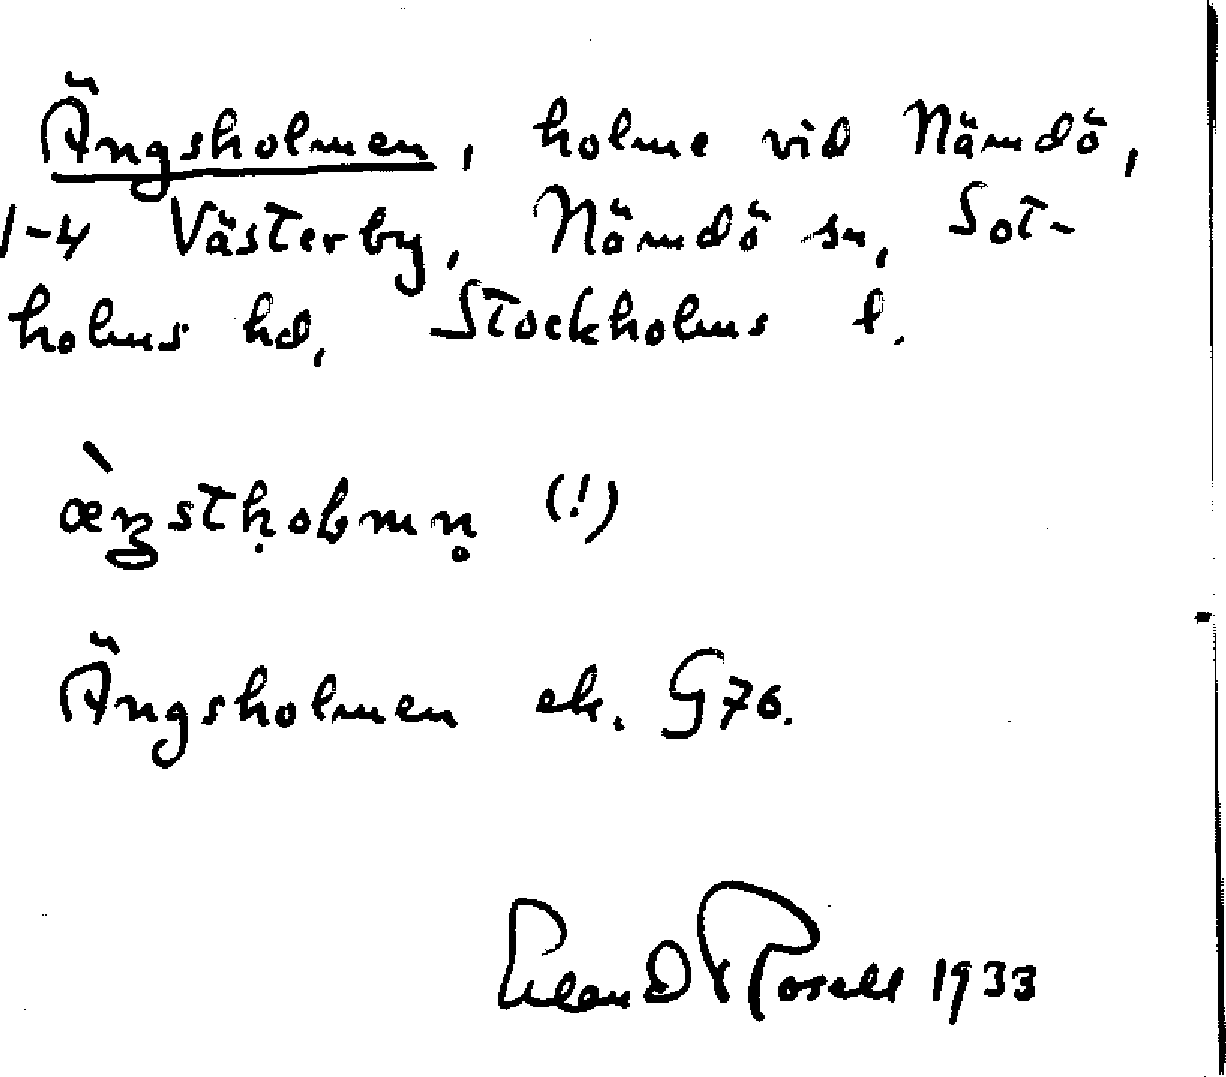 Ängsholmen, holme vid Nämdö,
1-4 Västerby, Nämdö sn, Sot-
holms hd, Stockholms l.
(!)
Ängsholmen ek. G76.
Erland Rosell 1933